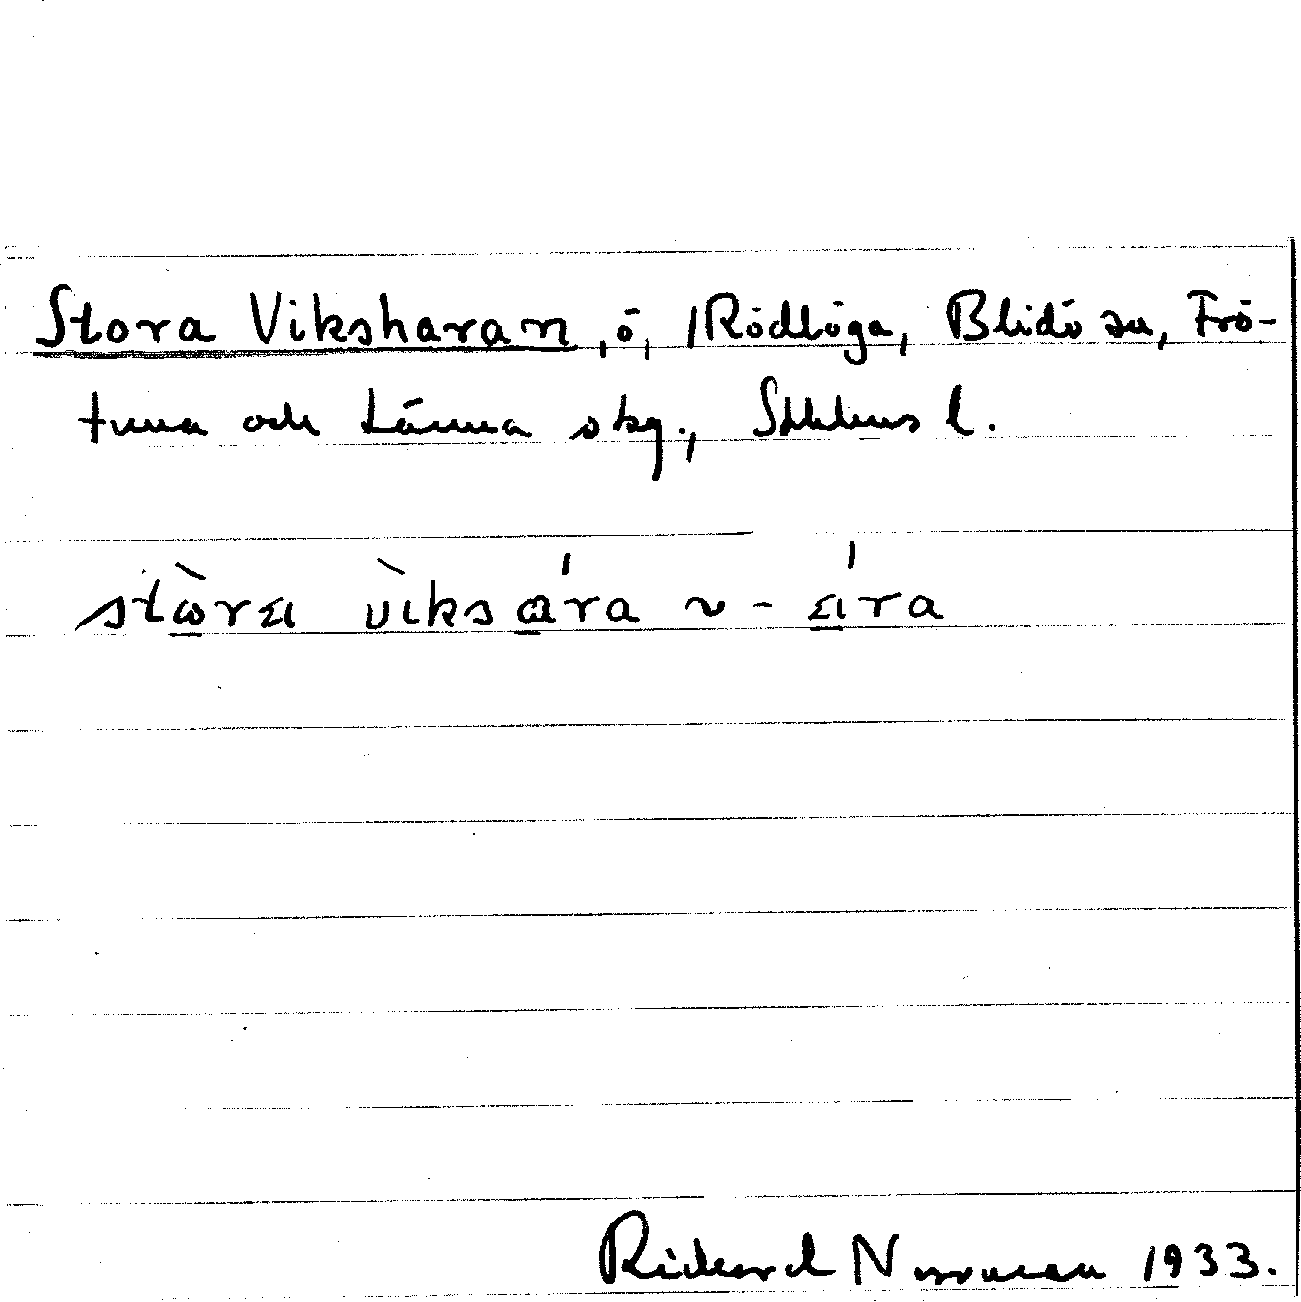 Stora Viksharan, ö, Rödlöga, Blidö sn, Frö-
tuna och Länna skg., Sthlms l.
stὼra vìksɑ́ra ~ -ára
Rickard Norrman 1933.